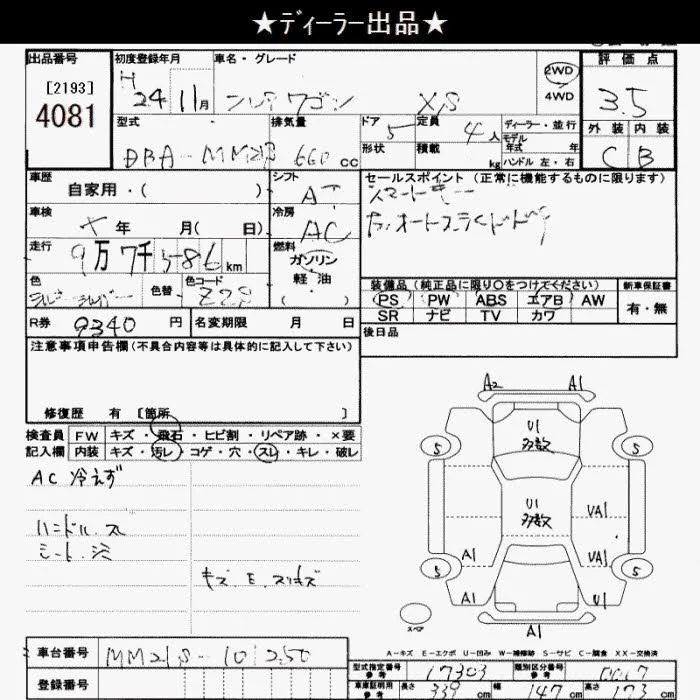 ★ディーラー出品★
出品番号 初度登録年月 車名・グレード 2WD 4WD 評価点
[2193]
4081
H 24年 11月 フレアワゴン XS 3.5
外装 内装
C B
型式 排気量 ドア 定員 ディーラー・並行
DBA-MM21S 660cc 5 4人 モデル年式 年
形状 積載 kg ハンドル 左・右
車歴 シフト セールスポイント (正常に機能するものに限ります)
自家用・( ) AT スマートキー
車検 冷房
年 月( 日) AC
走行 燃料
9万7千586km ガソリン
軽油
( )
色 色替 色コード
Z2S
装備品 (純正品に限り○をつけてください) 新車保証書
PS PW ABS エアB AW 有・無
SR ナビ TV カワ
R券 9340円 名変期限 月 日
後日品
注意事項申告欄(不具合内容等は具体的に記入して下さい)
修復歴 有 [箇所 ]
検査員 FW キズ・飛石・ヒビ割・リペア跡・×要
記入欄 内装 キズ・汚レ・コゲ・穴・スレ・キレ・破レ
AC 冷えず
ハンドル.ス
シート.シミ
キズ.E.スリキズ
A2 A1
U1
多数
5 5
U1
多数
UA1
A1 UA1
5 5
A1 U1
スペア
A1
A-キズ E-エクボ U-凹み W-補修跡 S-サビ C-腐食 XX-交換済
車台番号 MM21S-101250
登録番号
型式指定番号 参考 17303 類別区分番号 参考
車庫証明用 参考 長さ 339cm 幅 147cm 高さ cm